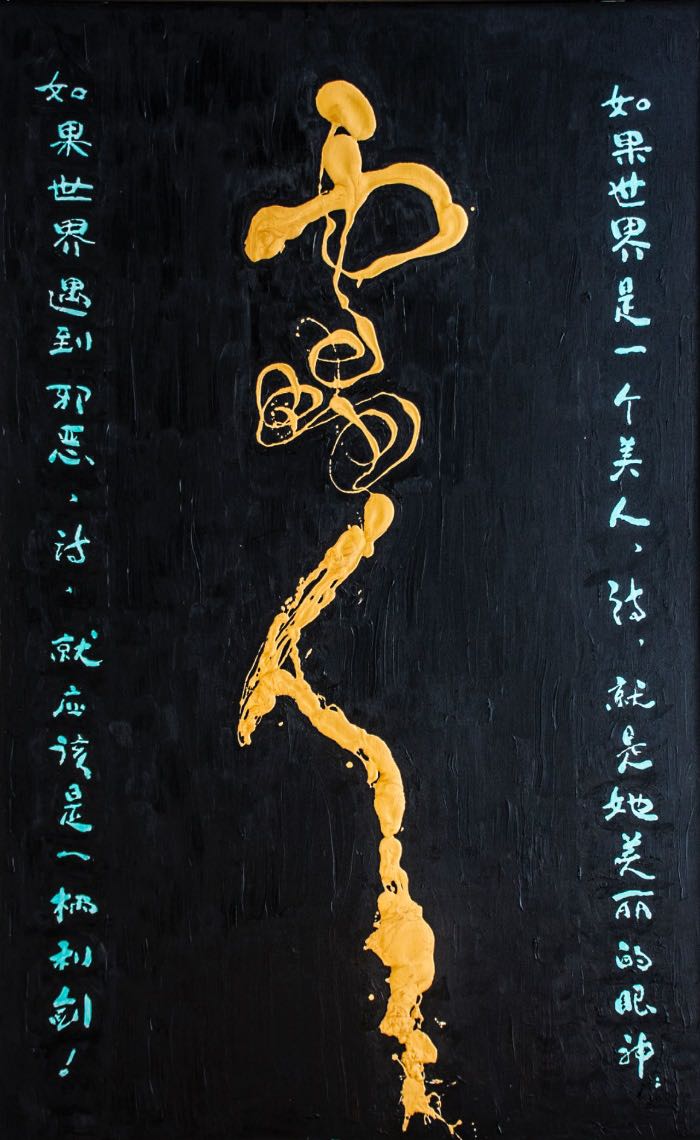 如果世界是一个美人，诗，就是她美丽的眼神；
如果世界遇到邪恶，诗，就应该是一柄利剑！